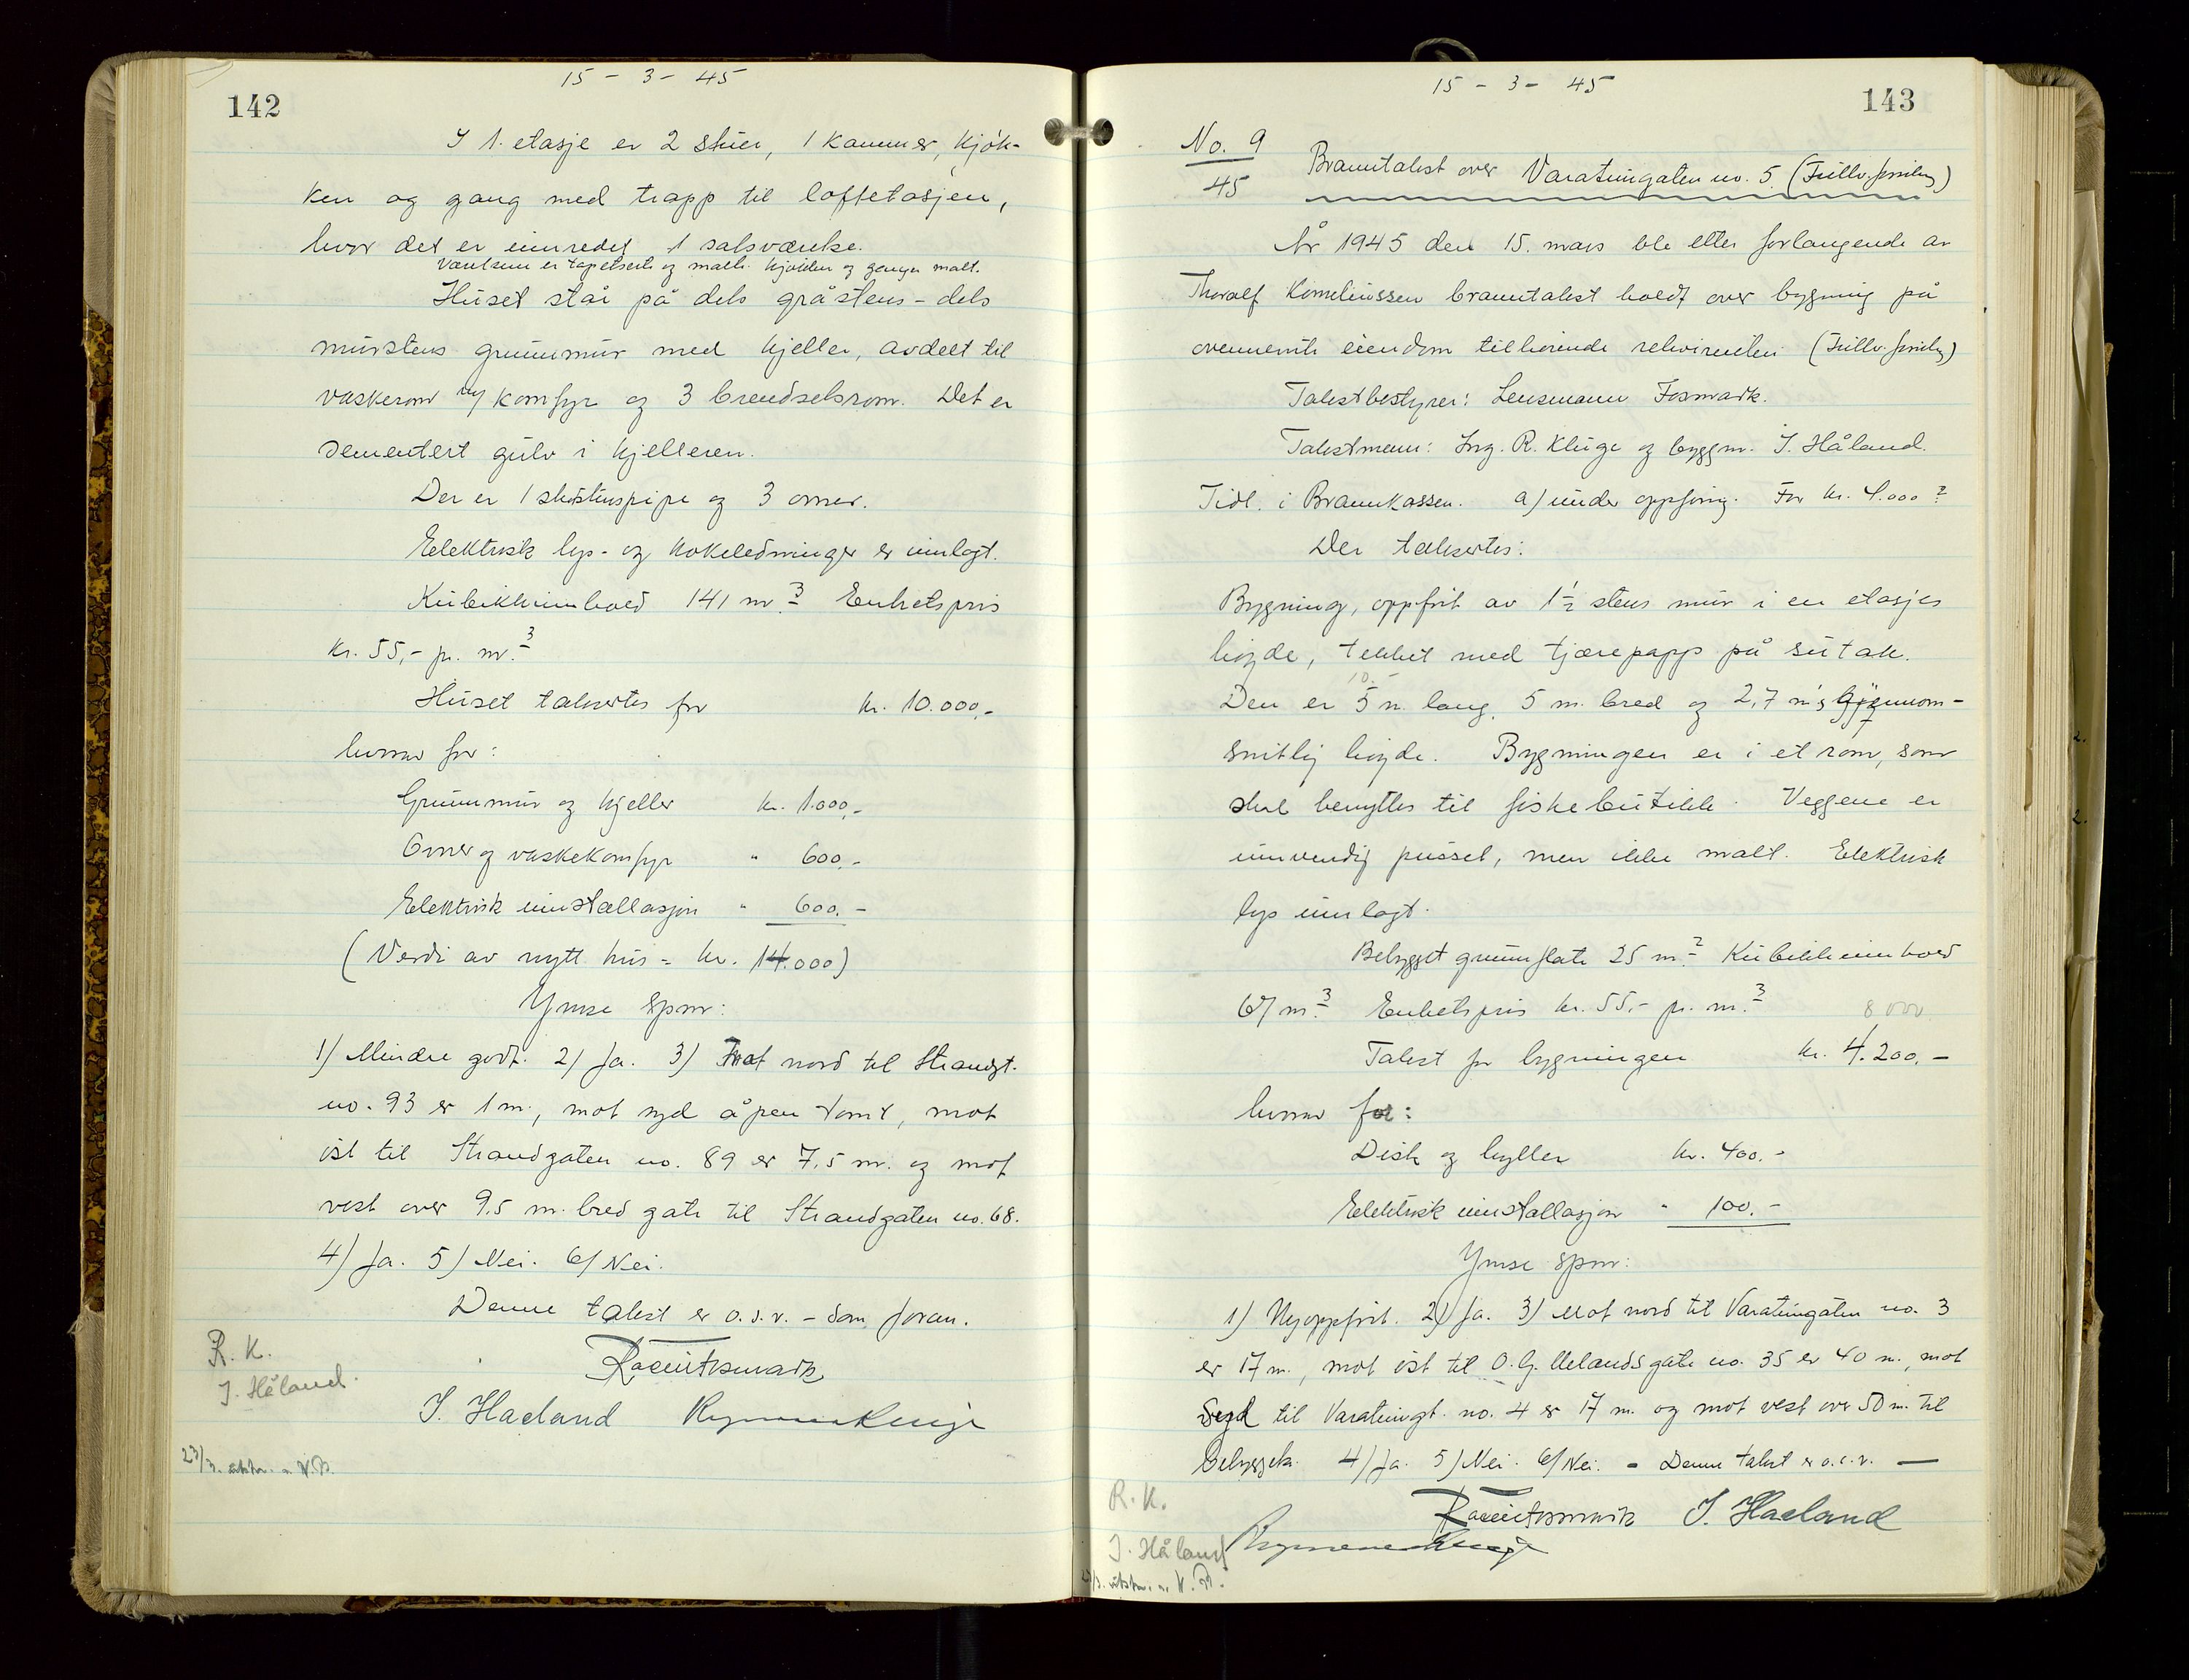 15 - 3 - 45
142
I 1. etasje er 2 stuer, 1 kammer, kjøk-
ken og gang med trapp til loftetasjen,
hvor det er innredet 1 salsværelse.
Værelsene er tapetserte og malte. Kjøkken og ganger malt.
Huset står på dels gråstens - dels
murstens grunnmur med kjeller, avdelt til
vaskerom m/ komfyr og 3 brendselsrom. Det er
sementert gulv i kjelleren.
Der er 1 skorstenspipe og 3 ovner.
Elektrisk lys- og kokeledninger er innlagt.
Kubikkinnhold 141 m.³ Enhetspris
kr. 55,- pr. m.³
Huset takseres for kr. 10.000,-
hvorav for:
Grunnmur og kjeller kr. 1.000,-
Ovner og vaskekomfyr " 600,-
Elektrisk innstallasjon " 600.-
(Verdi av nytt hus = kr. 14.000)
Ymse spm:
1) Mindre godt. 2) Ja. 3) Mot nord til Strandgt.
no. 93 er 1 m., mot syd åpen tomt, mot
øst til Strandgaten no. 89 er 7,5 m. og mot
vest over 9,5 m. bred gate til Strandgaten no. 68.
4) Ja. 5) Nei. 6) Nei.
Denne takst er o.s.v. - som foran.
R. K.
J. Håland.
J. Haaland
23/3. utskr. n. V.B.
15 - 3 - 45
143
No. 9
45
Branntakst over Varatungaten no. 5
År 1945 den 15. mars ble etter forlangende av
Thoralf Korneliussen branntakst holdt over bygning på
ovennevnte eiendom tilhørende rekvirenten
Takstbestyrer: Lensmann Fosmark.
Takstmenn: Ing. R. Kluge og byggm. J. Håland.
Tidl. i Brannkassen. a) under oppføring. For kr. 4.000 ?
Der takseres:
Bygning, oppført av 1½ stens mur i en etasjes
høyde, tekket med tjærepapp på sutak.
10.-
Den er 5 m. lang, 5 m. bred og 2,7 m's gjennom-
snitlig høyde. Bygningen er i et rom, som
skal benyttes til fiskebutikk. Veggene er
innvendig pusset, men ikke malt. Elektrisk
lys innlagt.
Bebygget grunnflate 25 m.² Kubikkinnhold
67 m.³ Enhetspris kr. 55.- pr. m.³ 8 000
Takst for bygningen kr. 4.200.-
hvorav for:
Disk og hyller kr. 400.-
Elektrisk innstallasjon " 100.-
Ymse spm:
1) Nyoppført. 2) Ja. 3) Mot nord til Varatungaten no. 3
er 17 m., mot øst til O. G. Melands gate no. 35 er 40 m., mot
Syd til Varatungt. no. 4 er 17 m. og mot vest over 50 m. til
bebyggelse. 4) Ja. 5) Nei. 6) Nei. - Denne takst er o.s.v. —
R. K.
J. Haaland
J. Håland
23/3. utskr. n. V.B.